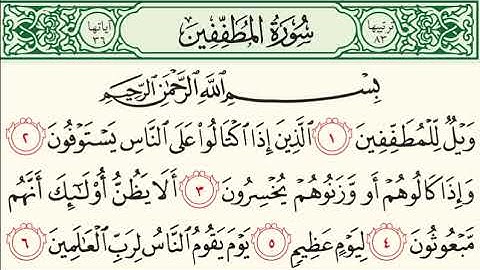 ترتيبها ٨٣ سُورَةُ المُطَفِّفِين آياتها ٣٦
بِسْمِ اللَّهِ الرَّحْمَٰنِ الرَّحِيمِ
وَيْلٌ لِّلْمُطَفِّفِينَ ١ الَّذِينَ إِذَا اكْتَالُوا عَلَى النَّاسِ يَسْتَوْفُونَ ٢
وَإِذَا كَالُوهُمْ أَو وَّزَنُوهُمْ يُخْسِرُونَ ٣ أَلَا يَظُنُّ أُولَٰئِكَ أَنَّهُم
مَّبْعُوثُونَ ٤ لِيَوْمٍ عَظِيمٍ ٥ يَوْمَ يَقُومُ النَّاسُ لِرَبِّ الْعَالَمِينَ ٦